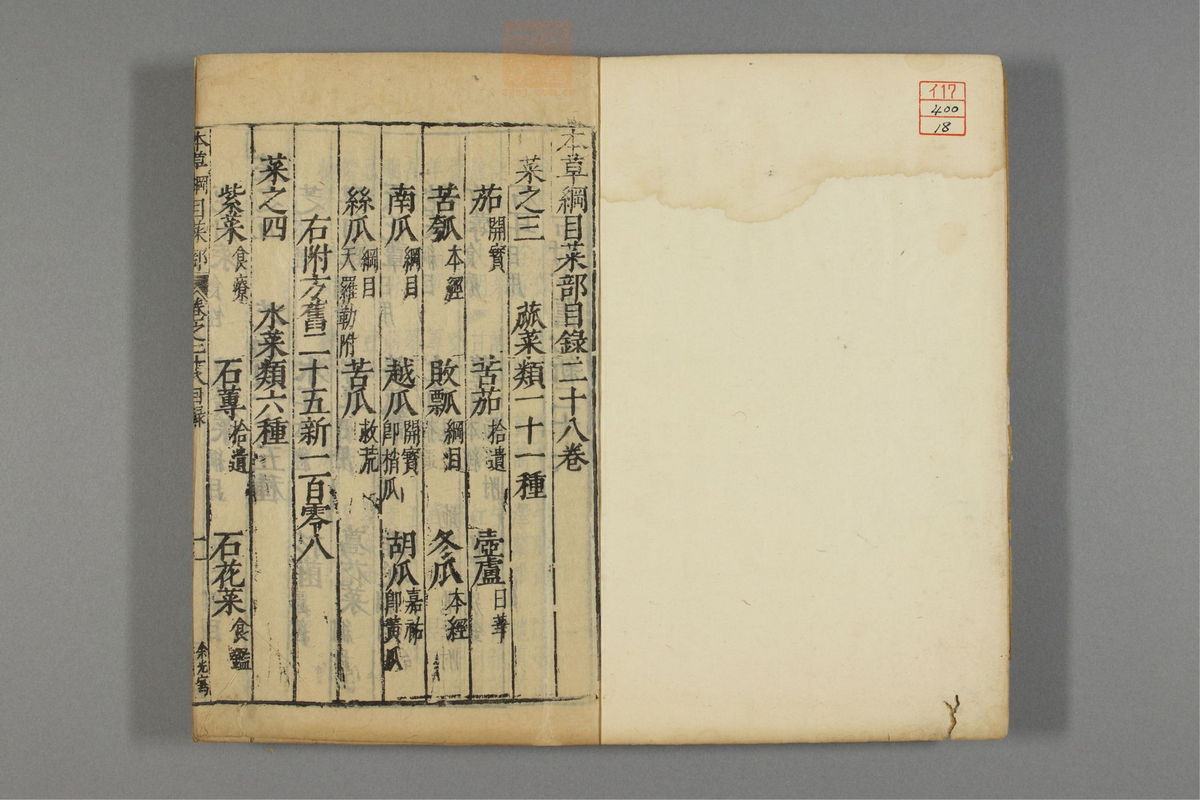 イ17
400
18
本草綱目菜部目錄二十八卷
菜之三 蓏菜類一十一種
茄開寳 苦茄拾遺 壺盧日華
苦瓠本經 敗瓢綱目 冬瓜本經
南瓜綱目 越瓜開寳即梢瓜 胡瓜嘉祐即黃瓜
絲瓜綱目天羅勒附 苦瓜救荒
右附方舊二十五新一百零八
菜之四 水菜類六種
紫菜食療 石蓴拾遺 石花菜食鑑
本草綱目菜部 卷之二十八目錄 一